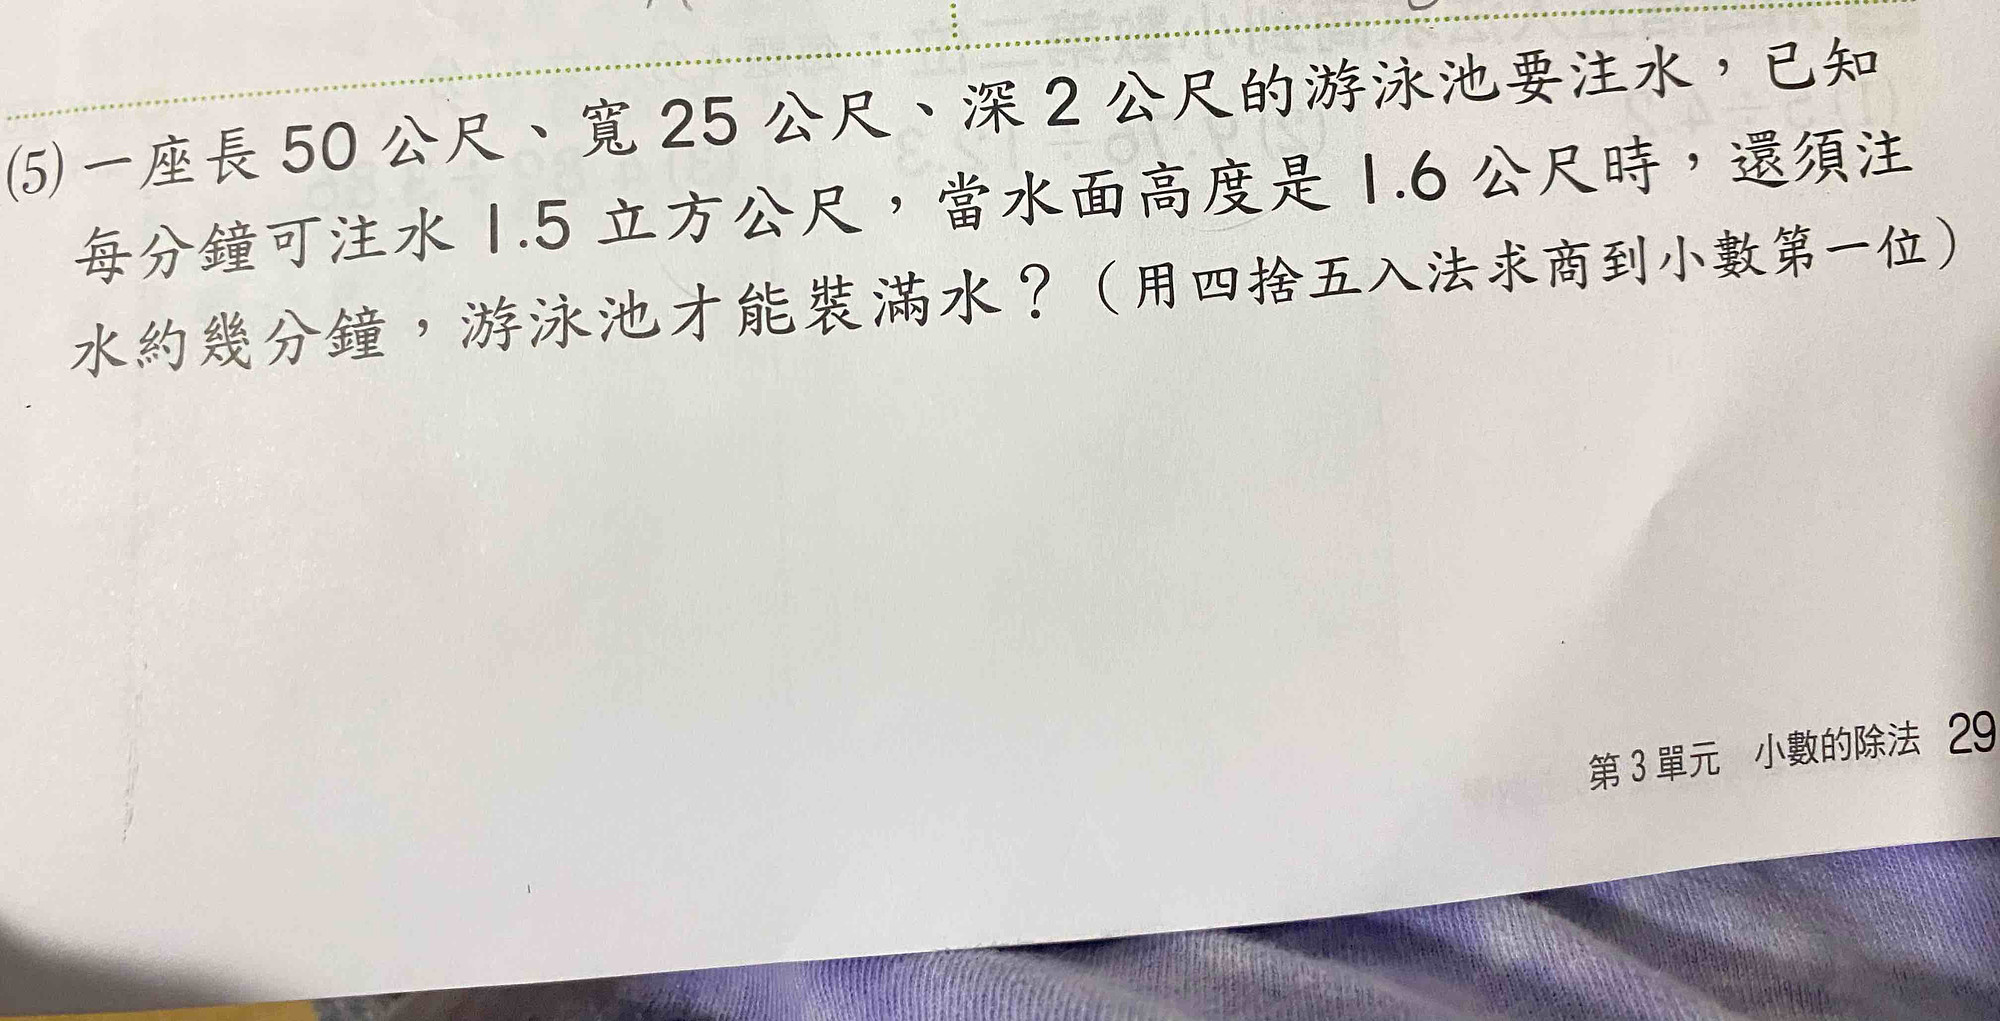 (5)一座長 50 公尺、寬 25 公尺、深 2 公尺的游泳池要注水，已知
每分鐘可注水 1.5 立方公尺，當水面高度是 1.6 公尺時，還須注
水約幾分鐘，游泳池才能裝滿水？（用四捨五入法求商到小數第一位）
第 3 單元 小數的除法 29